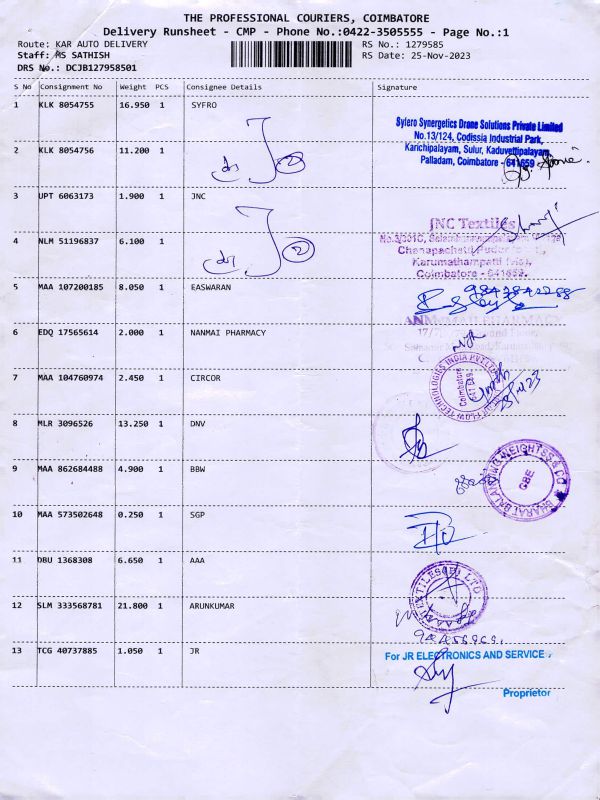 THE PROFESSIONAL COURIERS, COIMBATORE
Delivery Runsheet - CMP - Phone No.:0422-3505555 - Page No.:1
Route: KAR AUTO DELIVERY RS No.: 1279585
Staff: MS SATHISH RS Date: 25-Nov-2023
DRS No.: DCJB127958501
S No Consignment No Weight PCS Consignee Details Signature
1 KLK 8054755 16.950 1 SYFRO
Syfero Synergetics Drone Solutions Private Limited
No.13/124, Codissia Industrial Park,
Karichipalayam, Sulur, Kaduvettipalayam,
Palladam, Coimbatore - 641659
2 KLK 8054756 11.200 1
2
3 UPT 6063173 1.900 1 JNC
JNC Textiles
4 NLM 51196837 6.100 1
2
Karumathampatti (via),
Coimbatore - 641659.
5 MAA 107200185 8.050 1 EASWARAN
6 EDQ 17565614 2.000 1 NANMAI PHARMACY
7 MAA 104760974 2.450 1 CIRCOR
FLOW TECHNOLOGIES INDIA PVT LTD
Coimbatore
8 MLR 3096526 13.250 1 DNV
9 MAA 862684488 4.900 1 BBW
BHARAT BALANCING WEIGHTSS & CO
GBE
10 MAA 573502648 0.250 1 SGP
11 DBU 1368308 6.650 1 AAA
12 SLM 333568781 21.800 1 ARUNKUMAR
13 TCG 40737885 1.050 1 JR
For JR ELECTRONICS AND SERVICE
Proprietor